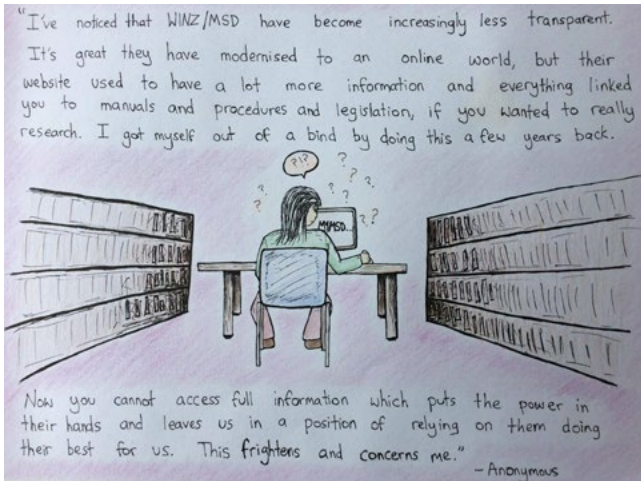 "I've noticed that WINZ/MSD have become increasingly less transparent.
It's great they have modernised to an online world, but their
website used to have a lot more information and everything linked
you to manuals and procedures and legislation, if you wanted to really
research. I got myself out of a bind by doing this a few years back.
?!?
? ? ? ? ? ? ? ?
MYMSD
Now you cannot access full information which puts the power in
their hands and leaves us in a position of relying on them doing
their best for us. This frightens and concerns me."
- Anonymous